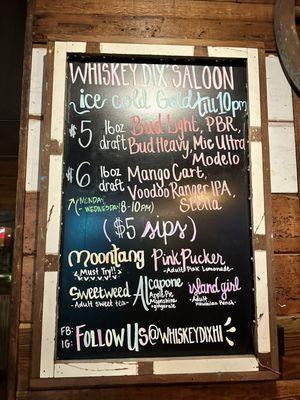 WHISKEY DIX SALOON
ice cold Gold till 10pm
$5 16oz draft Bud Light, PBR,
Bud Heavy, Mic Ultra
Modelo
$6 16oz draft Mango Cart,
Voodoo Ranger IPA,
Stella
(MONDAY - WEDNESDAY 8-10PM)
($5 sips)
Moontang
Must Try!!
Pink Pucker
-Adult Pink Lemonade-
Sweetweed
-Adult Sweet tea-
Al Capone
Apple Pie
Moonshine
+ gingerale
island girl
-Adult
Hawaiian Punch-
FB:
IG:
FOLLOW US@WHISKEYDIXHI